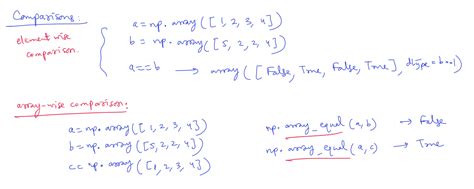 Comparisons:
element wise comparison.
a = np. array ([1, 2, 3, 4])
b = np. array ([5, 2, 2, 4])
a==b → array ([False, True, False, True], dtype=bool)
array-wise comparison:
a = np. array ([1, 2, 3, 4])
b = np. array ([5, 2, 2, 4])
c = np. array ([1, 2, 3, 4])
np. array_equal (a, b) → False
np. array_equal (a, c) → True